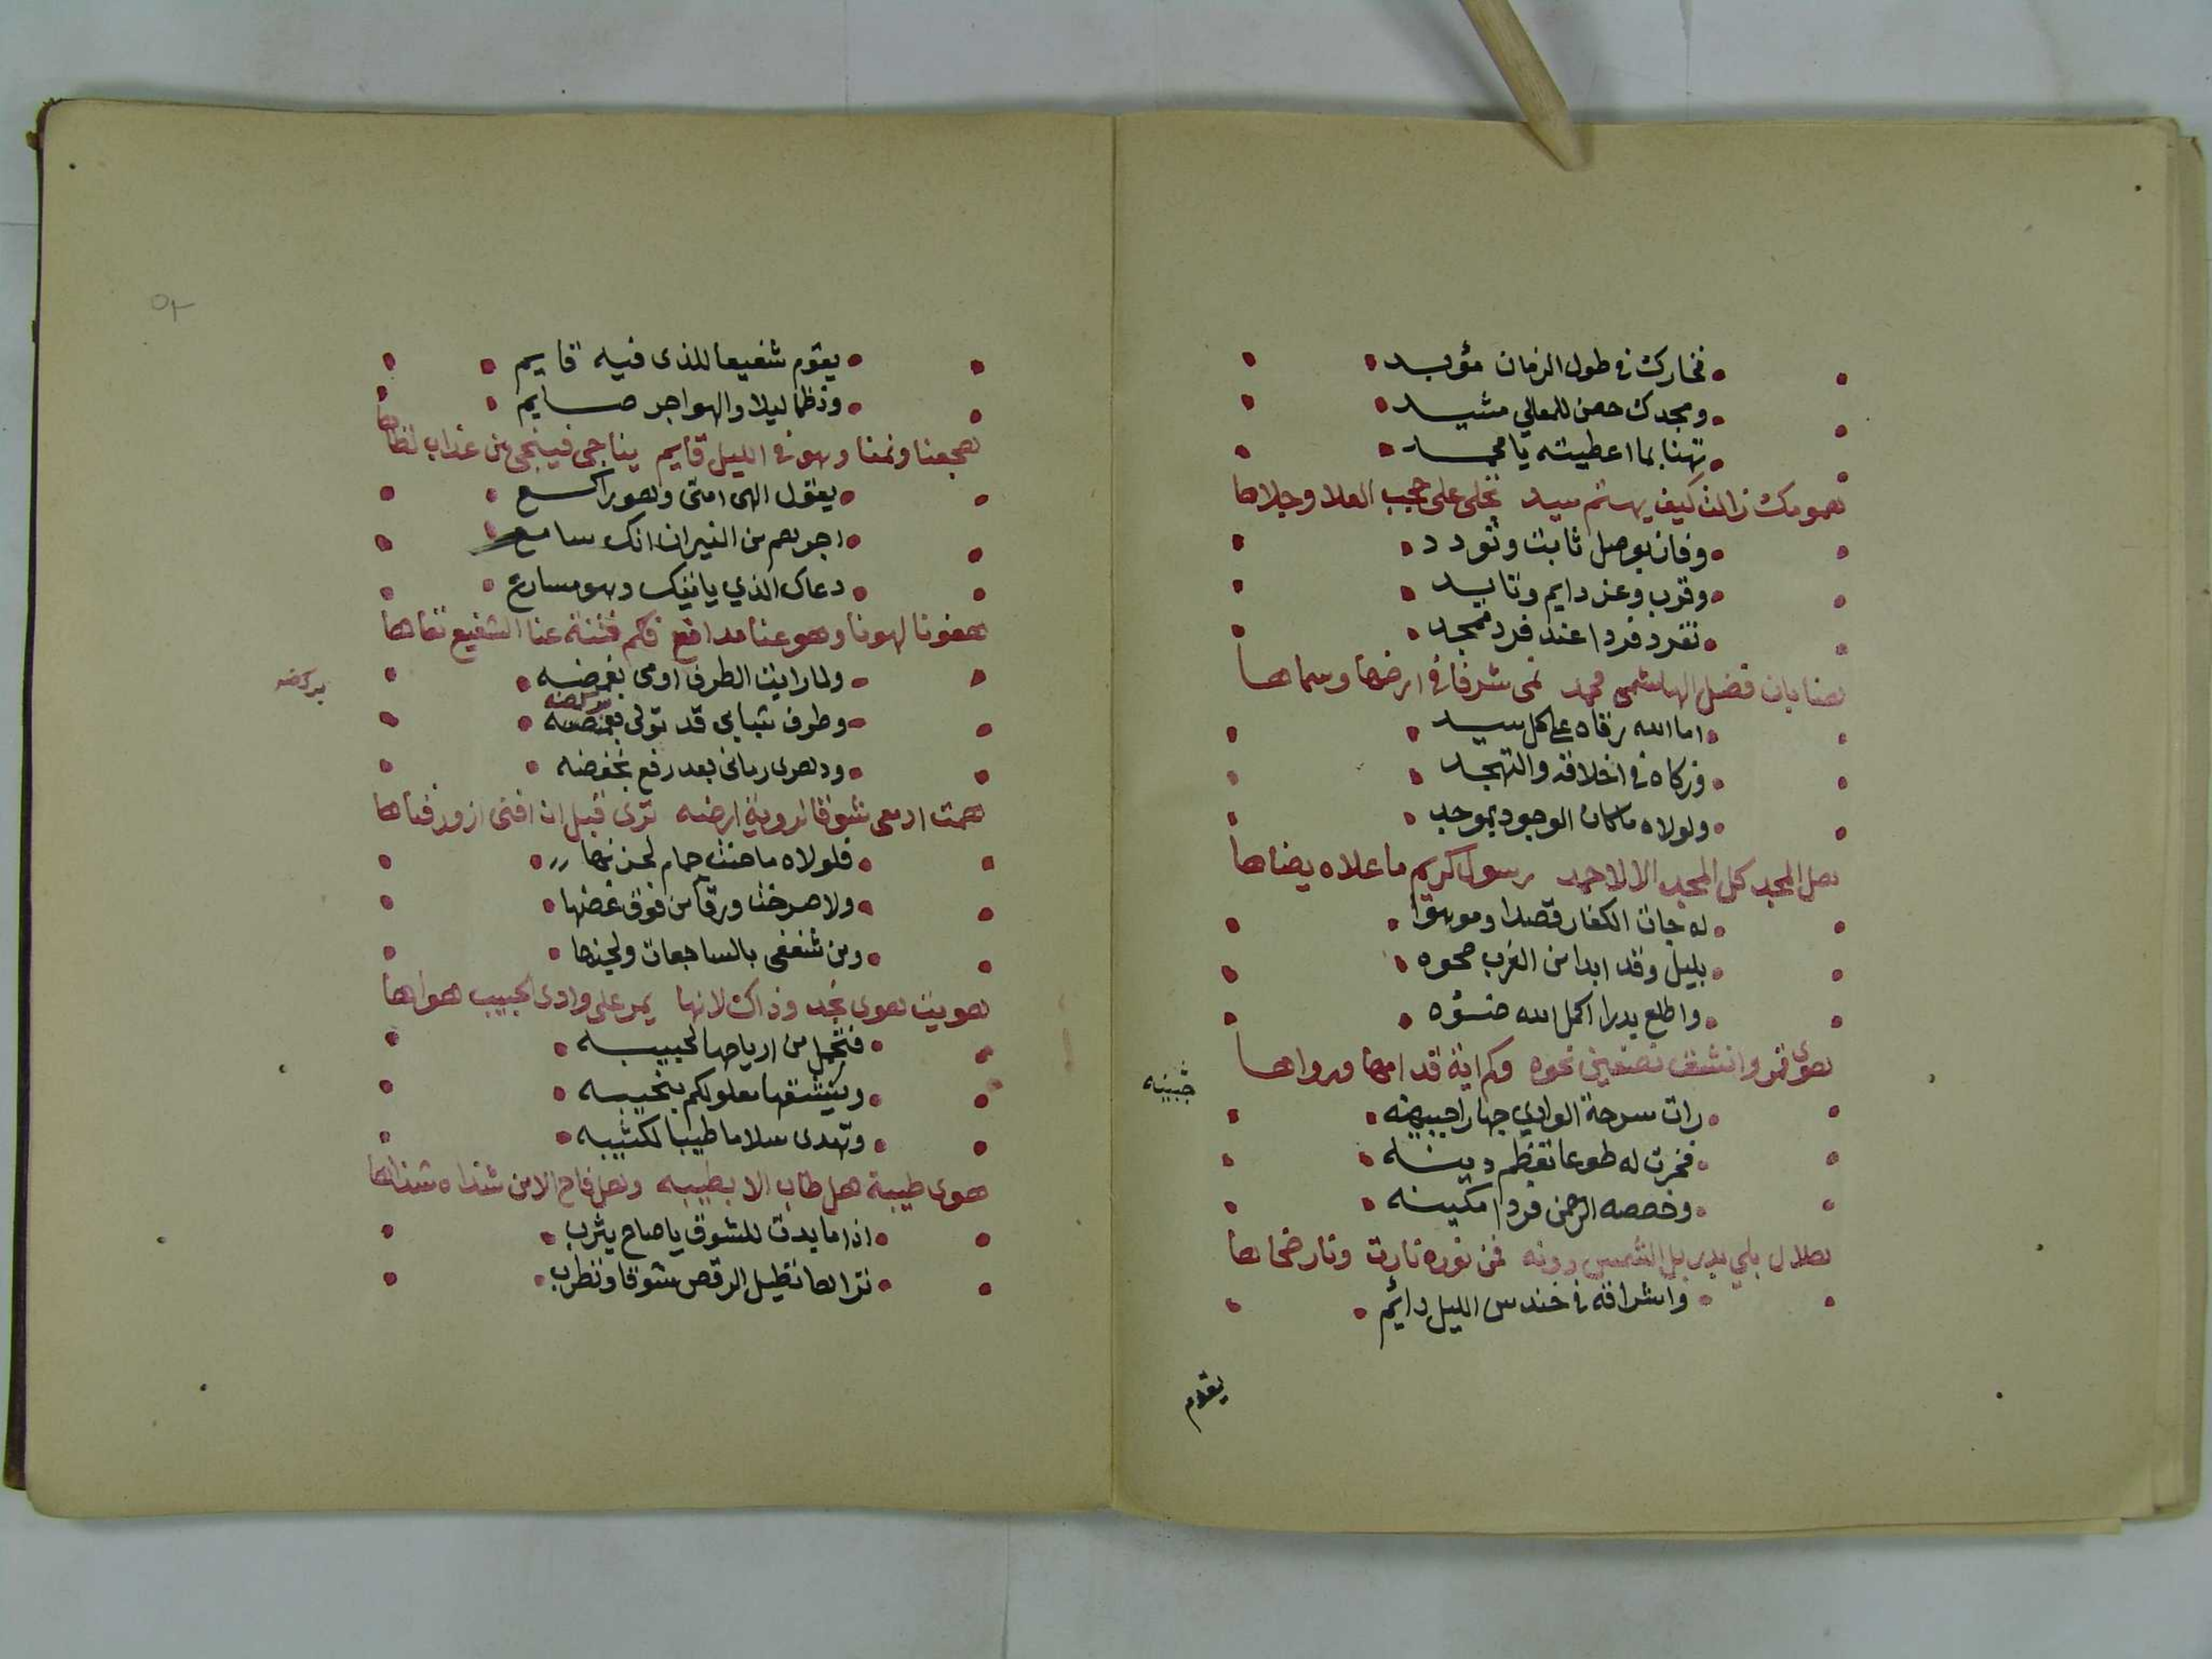 فخارك في طول الزمان مؤبد
ومجدك حصن للمعالي مشيد
تهنا بما اعطيته يا محمد
همومك زالت كيف يهتم سيد تجلى على حجب العلا وجلاها
وفات بوصل ثابت وتودد
وقرب وعز دايم وتايد
تفرد فردا عند فرد ممجد
هنا بان فضل الهاشمي محمد نمى شرفا في ارضها وسماها
اما الله رقاه على كل سيد
وزكاه في اخلاقه والتهجد
ولولاه ما كان الوجود بموجد
هل المجد كل المجد الا لاحمد رسول كريم ما علاه يضاها
له جات الكفار قصدا وموهوا
بليل وقد ابدا من الغرب صحوه
واطلع بدرا اكمل الله ضوءه
هوى قمر وانشق نصفين نحوه وكم اية قد امها ورواها
رات سرحة الوادي جهارا جبيهنه
جبينه
فخرت له طوعا تعظم دينه
وخصصه الرحمن فردا مكينه
هلال بلى بدر بل الشمس دونه فمن نوره نارت ونار ضحاها
واشراقه في خندس الليل دائم
يقوم
٥٢
يقوم شفيعا للذي فيه قايم
وذظما ليلا والهواجر صايم
هجعنا ونمنا وهو في الليل قايم يناجى فينجى من عذاب لظاها
يقول الهى امتى وهو راكع
اجرهم من النيران انك سامع
دعاك الذي ياتيك وهو مسارع
هفونا لهونا وهو عنا مدافع فكم فتنة عنا الشفيع نفاها
ولما رايت الطرف اومى بغمضه
وطرف شبابي قد تولى بركضه
بركضه
ودهرى رمانى بعد رفع بخفضه
همت ادمعى شوقا لروية ارضه ترى قبل ان افنى ازور فناها
فلولاه ما حنت حمام لحزنها
ولا صرخت ورقا من فوق غصنها
ومن شغفى بالساجعات ولحنها
هويت هوى نجد وذاك لانها يمر على وادى الحبيب هواها
فتحمل من ارياحها لحبيبه
وينشقها مملوكم بنحيبه
وتهدى سلاما طيبا لكثيبه
هوى طيبة هل طاب الا بطيبه وهل فاح الا من شذاه شذاها
اذا ما بدت للشوق يا صاح يثرب
تراها نطيل الرقص شوقا ونطرب